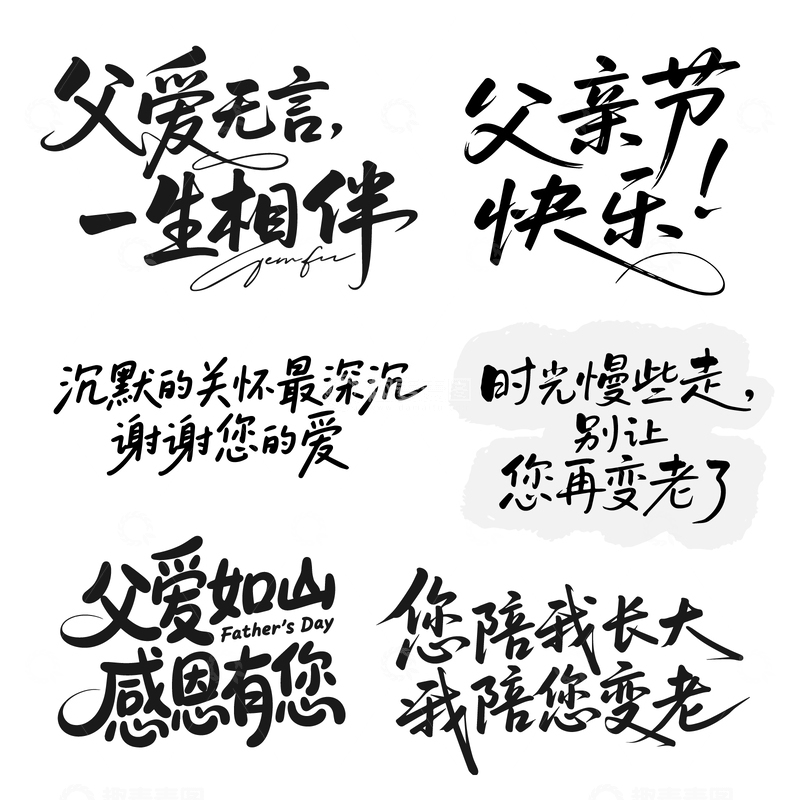 父爱无言,
一生相伴
父亲节
快乐!
沉默的关怀最深沉
谢谢您的爱
时光慢些走,
别让
您再变老了
父爱如山
Father's Day
感恩有您
您陪我长大
我陪您变老